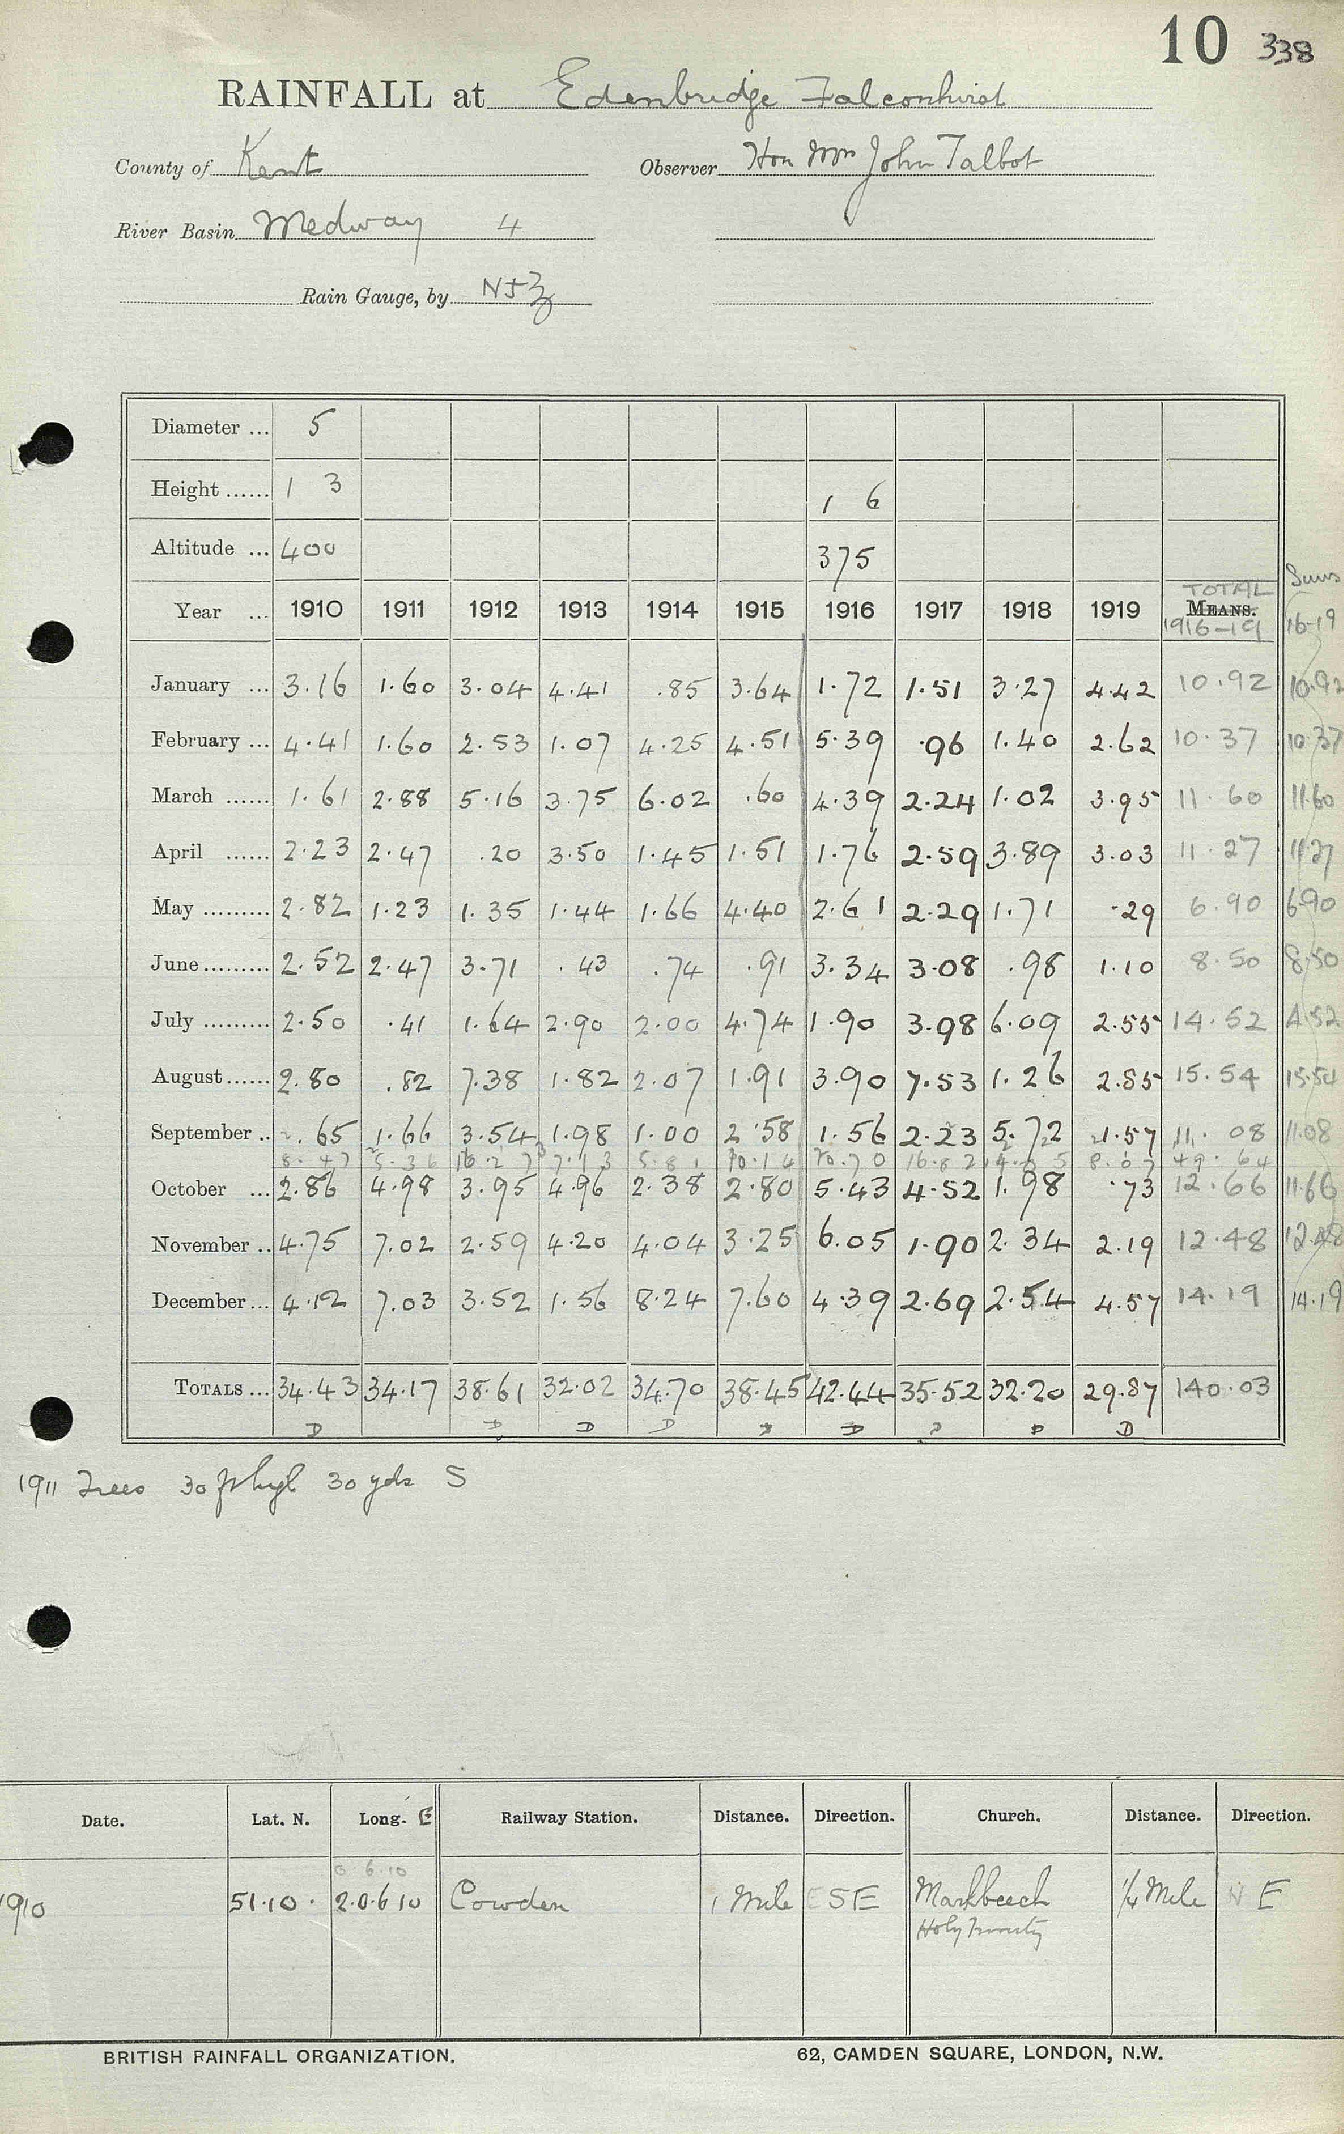 10 338
RAINFALL at Edenbridge Falconhurst
County of Kent Observer Hon Mrs John Talbot
River Basin Medway 4
Rain Gauge, by N&Z
Diameter ... 5
Height ...... 1 3 1 6
Altitude ... 400 375
TOTAL Sums
Year ... 1910 1911 1912 1913 1914 1915 1916 1917 1918 1919 MEANS.
1916-19 16-19
January ... 3.16 1.60 3.04 4.41 .85 3.64 1.72 1.51 3.27 4.42 10.92 10.92
February ... 4.41 1.60 2.53 1.07 4.25 4.51 5.39 .96 1.40 2.62 10.37 10.37
March ...... 1.61 2.88 5.16 3.75 6.02 .60 4.39 2.24 1.02 3.95 11.60 11.60
April ...... 2.23 2.47 .20 3.50 1.45 1.51 1.76 2.59 3.89 3.03 11.27 11.27
May ......... 2.82 1.23 1.35 1.44 1.66 4.40 2.61 2.29 1.71 .29 6.90 6.90
June ......... 2.52 2.47 3.71 .43 .74 .91 3.34 3.08 .98 1.10 8.50 8.50
July ......... 2.50 .41 1.64 2.90 2.00 4.74 1.90 3.98 6.09 2.55 14.52 14.52
August ...... 2.80 .82 7.38 1.82 2.07 1.91 3.90 7.53 1.26 2.85 15.54 15.54
September .. .65 1.66 3.54 1.98 1.00 2.58 1.56 2.23 5.72 1.57 11.08 11.08
October ... 2.86 4.98 3.95 4.96 2.38 2.80 5.43 4.52 1.98 .73 12.66 11.66
November .. 4.75 7.02 2.59 4.20 4.04 3.25 6.05 1.90 2.34 2.19 12.48 12.48
December ... 4.12 7.03 3.52 1.56 8.24 7.60 4.39 2.69 2.54 4.57 14.19 14.19
TOTALS ... 34.43 34.17 38.61 32.02 34.70 38.45 42.44 35.52 32.20 29.87 140.03
D D D D D D D D
1911 Trees 30 ft high 30 yds S
Date. Lat. N. Long. E Railway Station. Distance. Direction. Church. Distance. Direction.
0 6.10
1910 51.10. 2.0.6 10 Cowden 1 Mile ESE Markbeech 1/4 Mile N E
Holy Trinity
BRITISH RAINFALL ORGANIZATION. 62, CAMDEN SQUARE, LONDON, N.W.